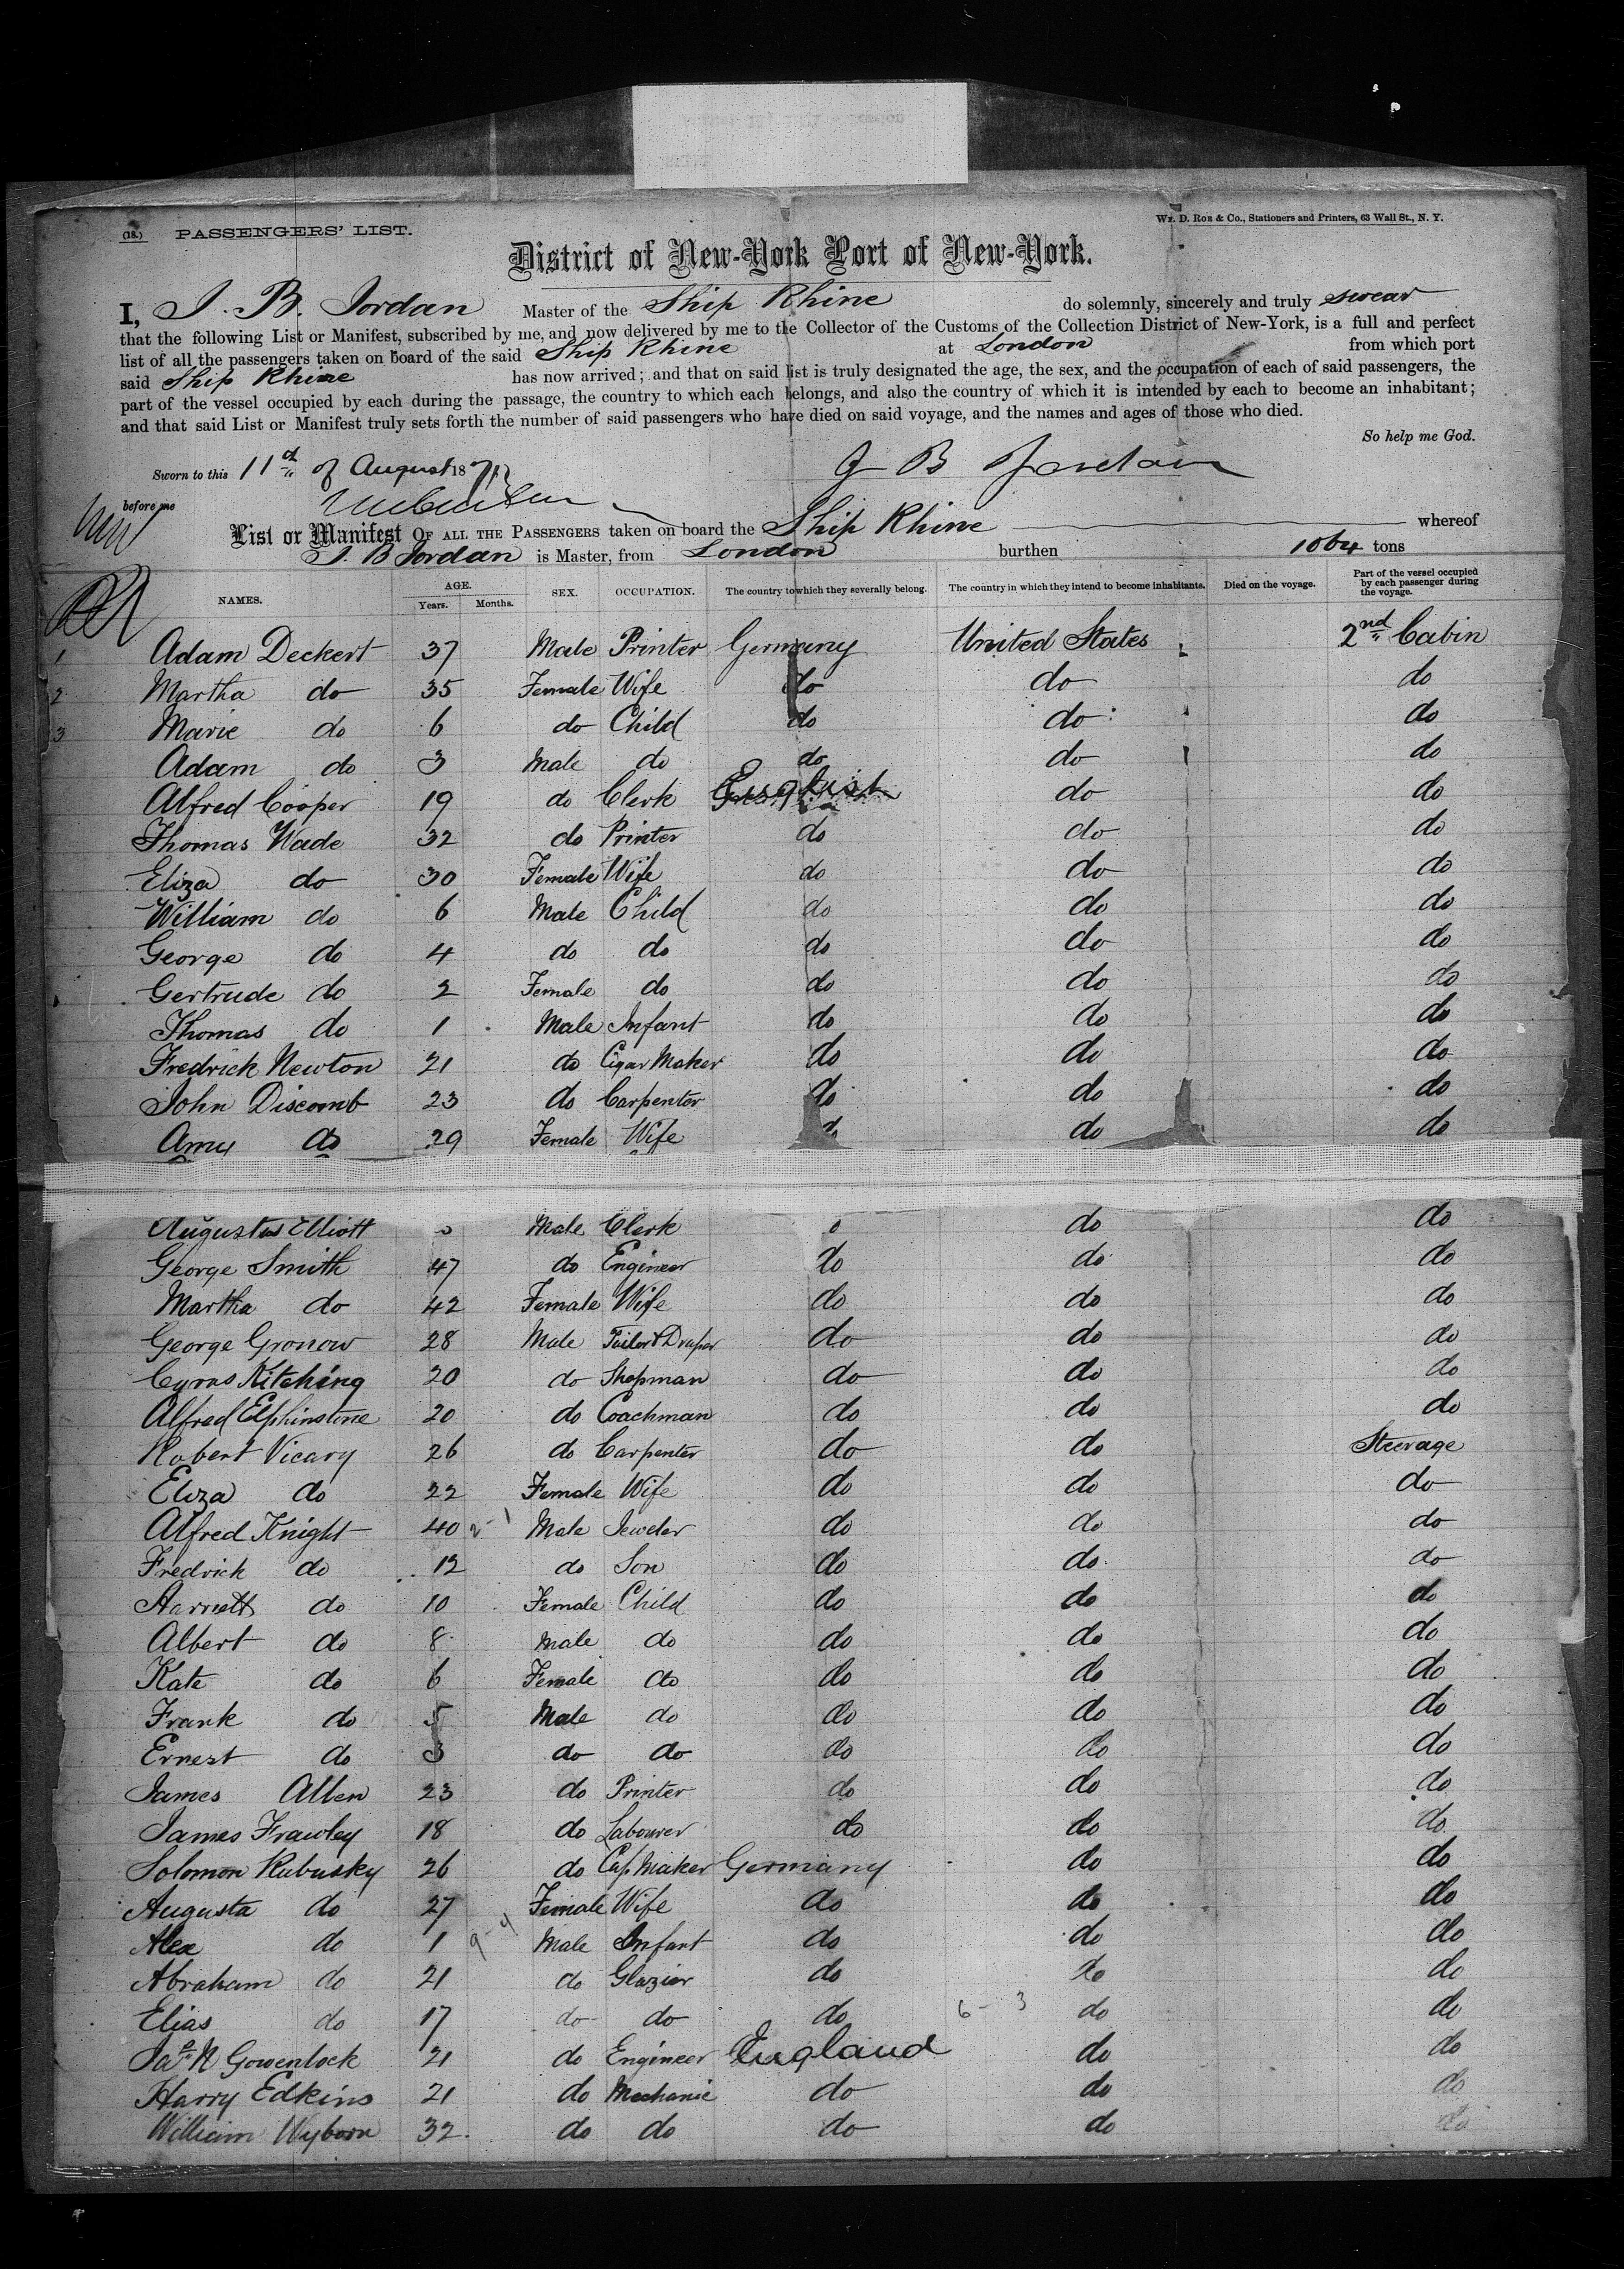 Wm. D. Roe & Co., Stationers and Printers, 63 Wall St., N. Y.
(18.) PASSENGERS' LIST.
District of New-York Port of New-York.
I, J. B. Jordan Master of the Ship Rhine do solemnly, sincerely and truly swear
that the following List or Manifest, subscribed by me, and now delivered by me to the Collector of the Customs of the Collection District of New-York, is a full and perfect
list of all the passengers taken on board of the said Ship Rhine at London from which port
said Ship Rhine has now arrived; and that on said list is truly designated the age, the sex, and the occupation of each of said passengers, the
part of the vessel occupied by each during the passage, the country to which each belongs, and also the country of which it is intended by each to become an inhabitant;
and that said List or Manifest truly sets forth the number of said passengers who have died on said voyage, and the names and ages of those who died.
So help me God.
Sworn to this 11th of August 1871 J B Jordan
before me
List or Manifest OF ALL THE PASSENGERS taken on board the Ship Rhine whereof
J. B Jordan is Master, from London burthen 1064 tons
NAMES. AGE. Years. Months. SEX. OCCUPATION. The country to which they severally belong. The country in which they intend to become inhabitants. Died on the voyage. Part of the vessel occupied by each passenger during the voyage.
1 Adam Deckert 37 Male Printer Germany United States 2nd Cabin
2 Martha do 35 Female Wife do do do
3 Marie do 6 do Child do do do
Adam do 3 Male do do do do
Alfred Cooper 19 do Clerk English do do
Thomas Wade 32 do Printer do do do
Eliza do 30 Female Wife do do do
William do 6 Male Child do do do
George do 4 do do do do do
Gertrude do 2 Female do do do do
Thomas do 1 Male Infant do do do
Fredrick Newton 21 do Cigar Maker do do do
John Discomb 23 do Carpenter do do do
Amy do 29 Female Wife do do do
Augustus Elliott Male Clerk do do
George Smith 47 do Engineer do do do
Martha do 42 Female Wife do do do
George Gronow 28 Male Tailor & Draper do do do
Cyrus Kitching 20 do Shopman do do do
Alfred Elphinstone 20 do Coachman do do do
Robert Vicary 26 do Carpenter do do Steerage
Eliza do 22 Female Wife do do do
Alfred Knight 40 Male Jeweler do do do
Fredrick do 12 do Son do do do
Harriett do 10 Female Child do do do
Albert do 8 Male do do do do
Kate do 6 Female do do do do
Frank do 5 Male do do do do
Ernest do 3 do do do do do
James Allen 23 do Printer do do do
James Frawley 18 do Labourer do do do
Solomon Rubusky 26 do Cap Maker Germany do do
Augusta do 27 Female Wife do do do
Alex do 1 9-4 Male Infant do do do
Abraham do 21 do Glazier do do do
Elias do 17 do do do 6-3 do do
Jas N Gowenlock 21 do Engineer England do do
Harry Edkins 21 do Mechanic do do do
William Wyborn 32 do do do do do